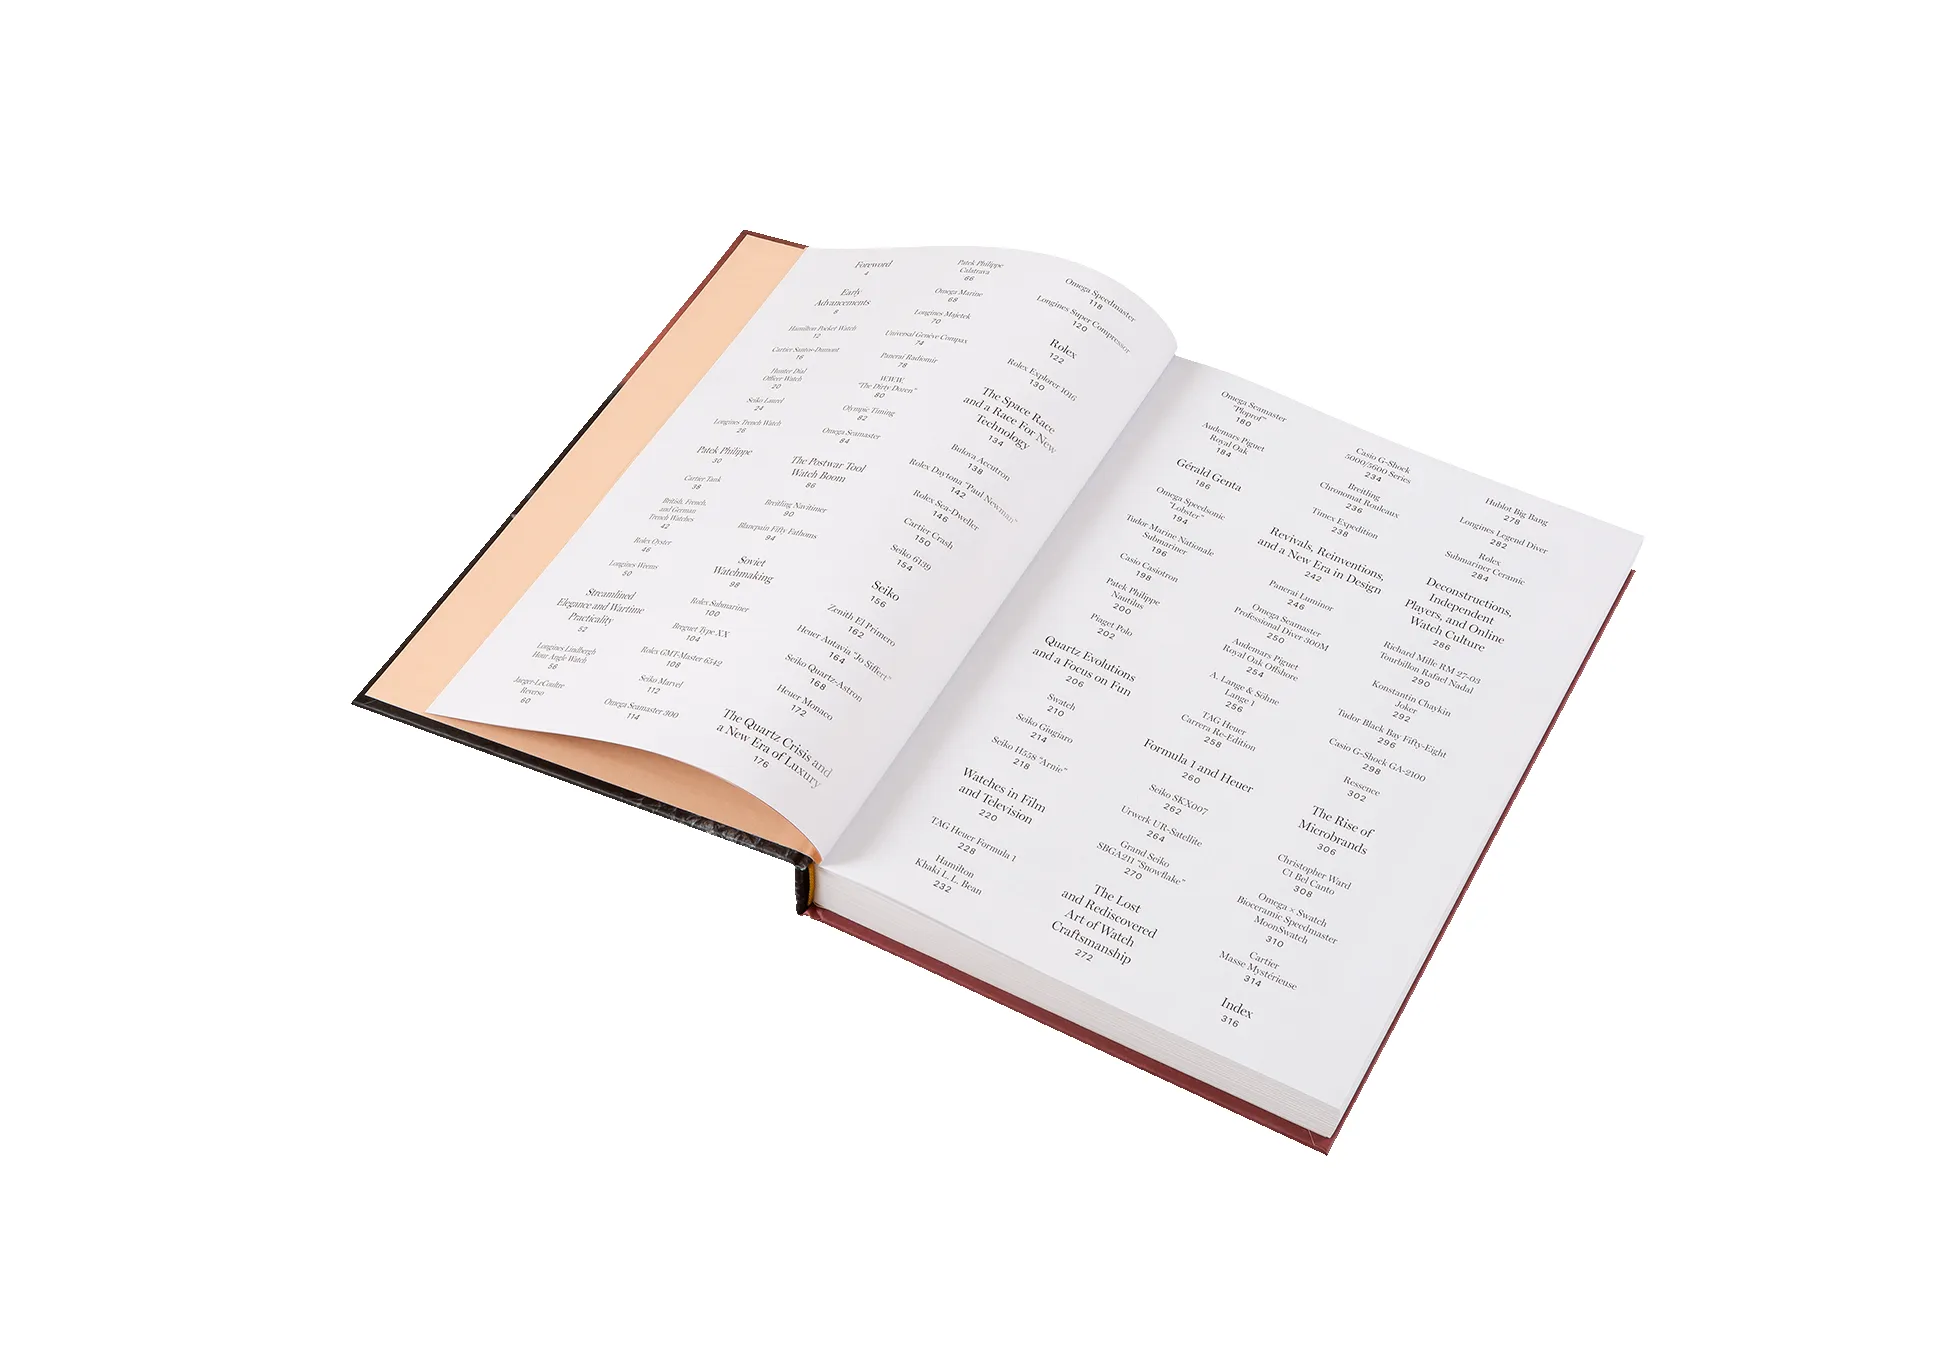 Foreword
4
Early
Advancements
8
Hamilton Pocket Watch
12
Cartier Santos-Dumont
16
Hunter Dial
Officer Watch
20
Seiko Laurel
24
Longines Trench Watch
26
Patek Philippe
30
Cartier Tank
38
British, French,
and German
Trench Watches
42
Rolex Oyster
46
Longines Weems
50
Streamlined
Elegance and Wartime
Practicality
52
Longines Lindbergh
Hour Angle Watch
56
Jaeger-LeCoultre
Reverso
60
Patek Philippe
Calatrava
66
Omega Marine
68
Longines Majetek
70
Universal Genève Compax
74
Panerai Radiomir
78
W.W.W.
"The Dirty Dozen"
80
Olympic Timing
82
Omega Seamaster
84
The Postwar Tool
Watch Boom
86
Breitling Navitimer
90
Blancpain Fifty Fathoms
94
Soviet
Watchmaking
98
Rolex Submariner
100
Breguet Type XX
104
Rolex GMT-Master 6542
108
Seiko Marvel
112
Omega Seamaster 300
114
Omega Speedmaster
118
Longines Super Compressor
120
Rolex
122
Rolex Explorer 1016
130
The Space Race
and a Race For New
Technology
134
Bulova Accutron
138
Rolex Daytona "Paul Newman"
142
Rolex Sea-Dweller
146
Cartier Crash
150
Seiko 6139
154
Seiko
156
Zenith El Primero
162
Heuer Autavia "Jo Siffert"
164
Seiko Quartz-Astron
168
Heuer Monaco
172
The Quartz Crisis and
a New Era of Luxury
176
Omega Seamaster
"Ploprof"
180
Audemars Piguet
Royal Oak
184
Gérald Genta
186
Omega Speedsonic
"Lobster"
194
Tudor Marine Nationale
Submariner
196
Casio Casiotron
198
Patek Philippe
Nautilus
200
Piaget Polo
202
Quartz Evolutions
and a Focus on Fun
206
Swatch
210
Seiko Giugiaro
214
Seiko H558 "Arnie"
218
Watches in Film
and Television
220
TAG Heuer Formula 1
228
Hamilton
Khaki L. L. Bean
232
Casio G-Shock
5000/5600 Series
234
Breitling
Chronomat Rouleaux
236
Timex Expedition
238
Revivals, Reinventions,
and a New Era in Design
242
Panerai Luminor
246
Omega Seamaster
Professional Diver 300M
250
Audemars Piguet
Royal Oak Offshore
254
A. Lange & Söhne
Lange 1
256
TAG Heuer
Carrera Re-Edition
258
Formula 1 and Heuer
260
Seiko SKX007
262
Urwerk UR-Satellite
264
Grand Seiko
SBGA211 "Snowflake"
270
The Lost
and Rediscovered
Art of Watch
Craftsmanship
272
Hublot Big Bang
278
Longines Legend Diver
282
Rolex
Submariner Ceramic
284
Deconstructions,
Independent
Players, and Online
Watch Culture
286
Richard Mille RM 27-03
Tourbillon Rafael Nadal
290
Konstantin Chaykin
Joker
292
Tudor Black Bay Fifty-Eight
296
Casio G-Shock GA-2100
298
Ressence
302
The Rise of
Microbrands
306
Christopher Ward
C1 Bel Canto
308
Omega × Swatch
Bioceramic Speedmaster
MoonSwatch
310
Cartier
Masse Mystérieuse
314
Index
316